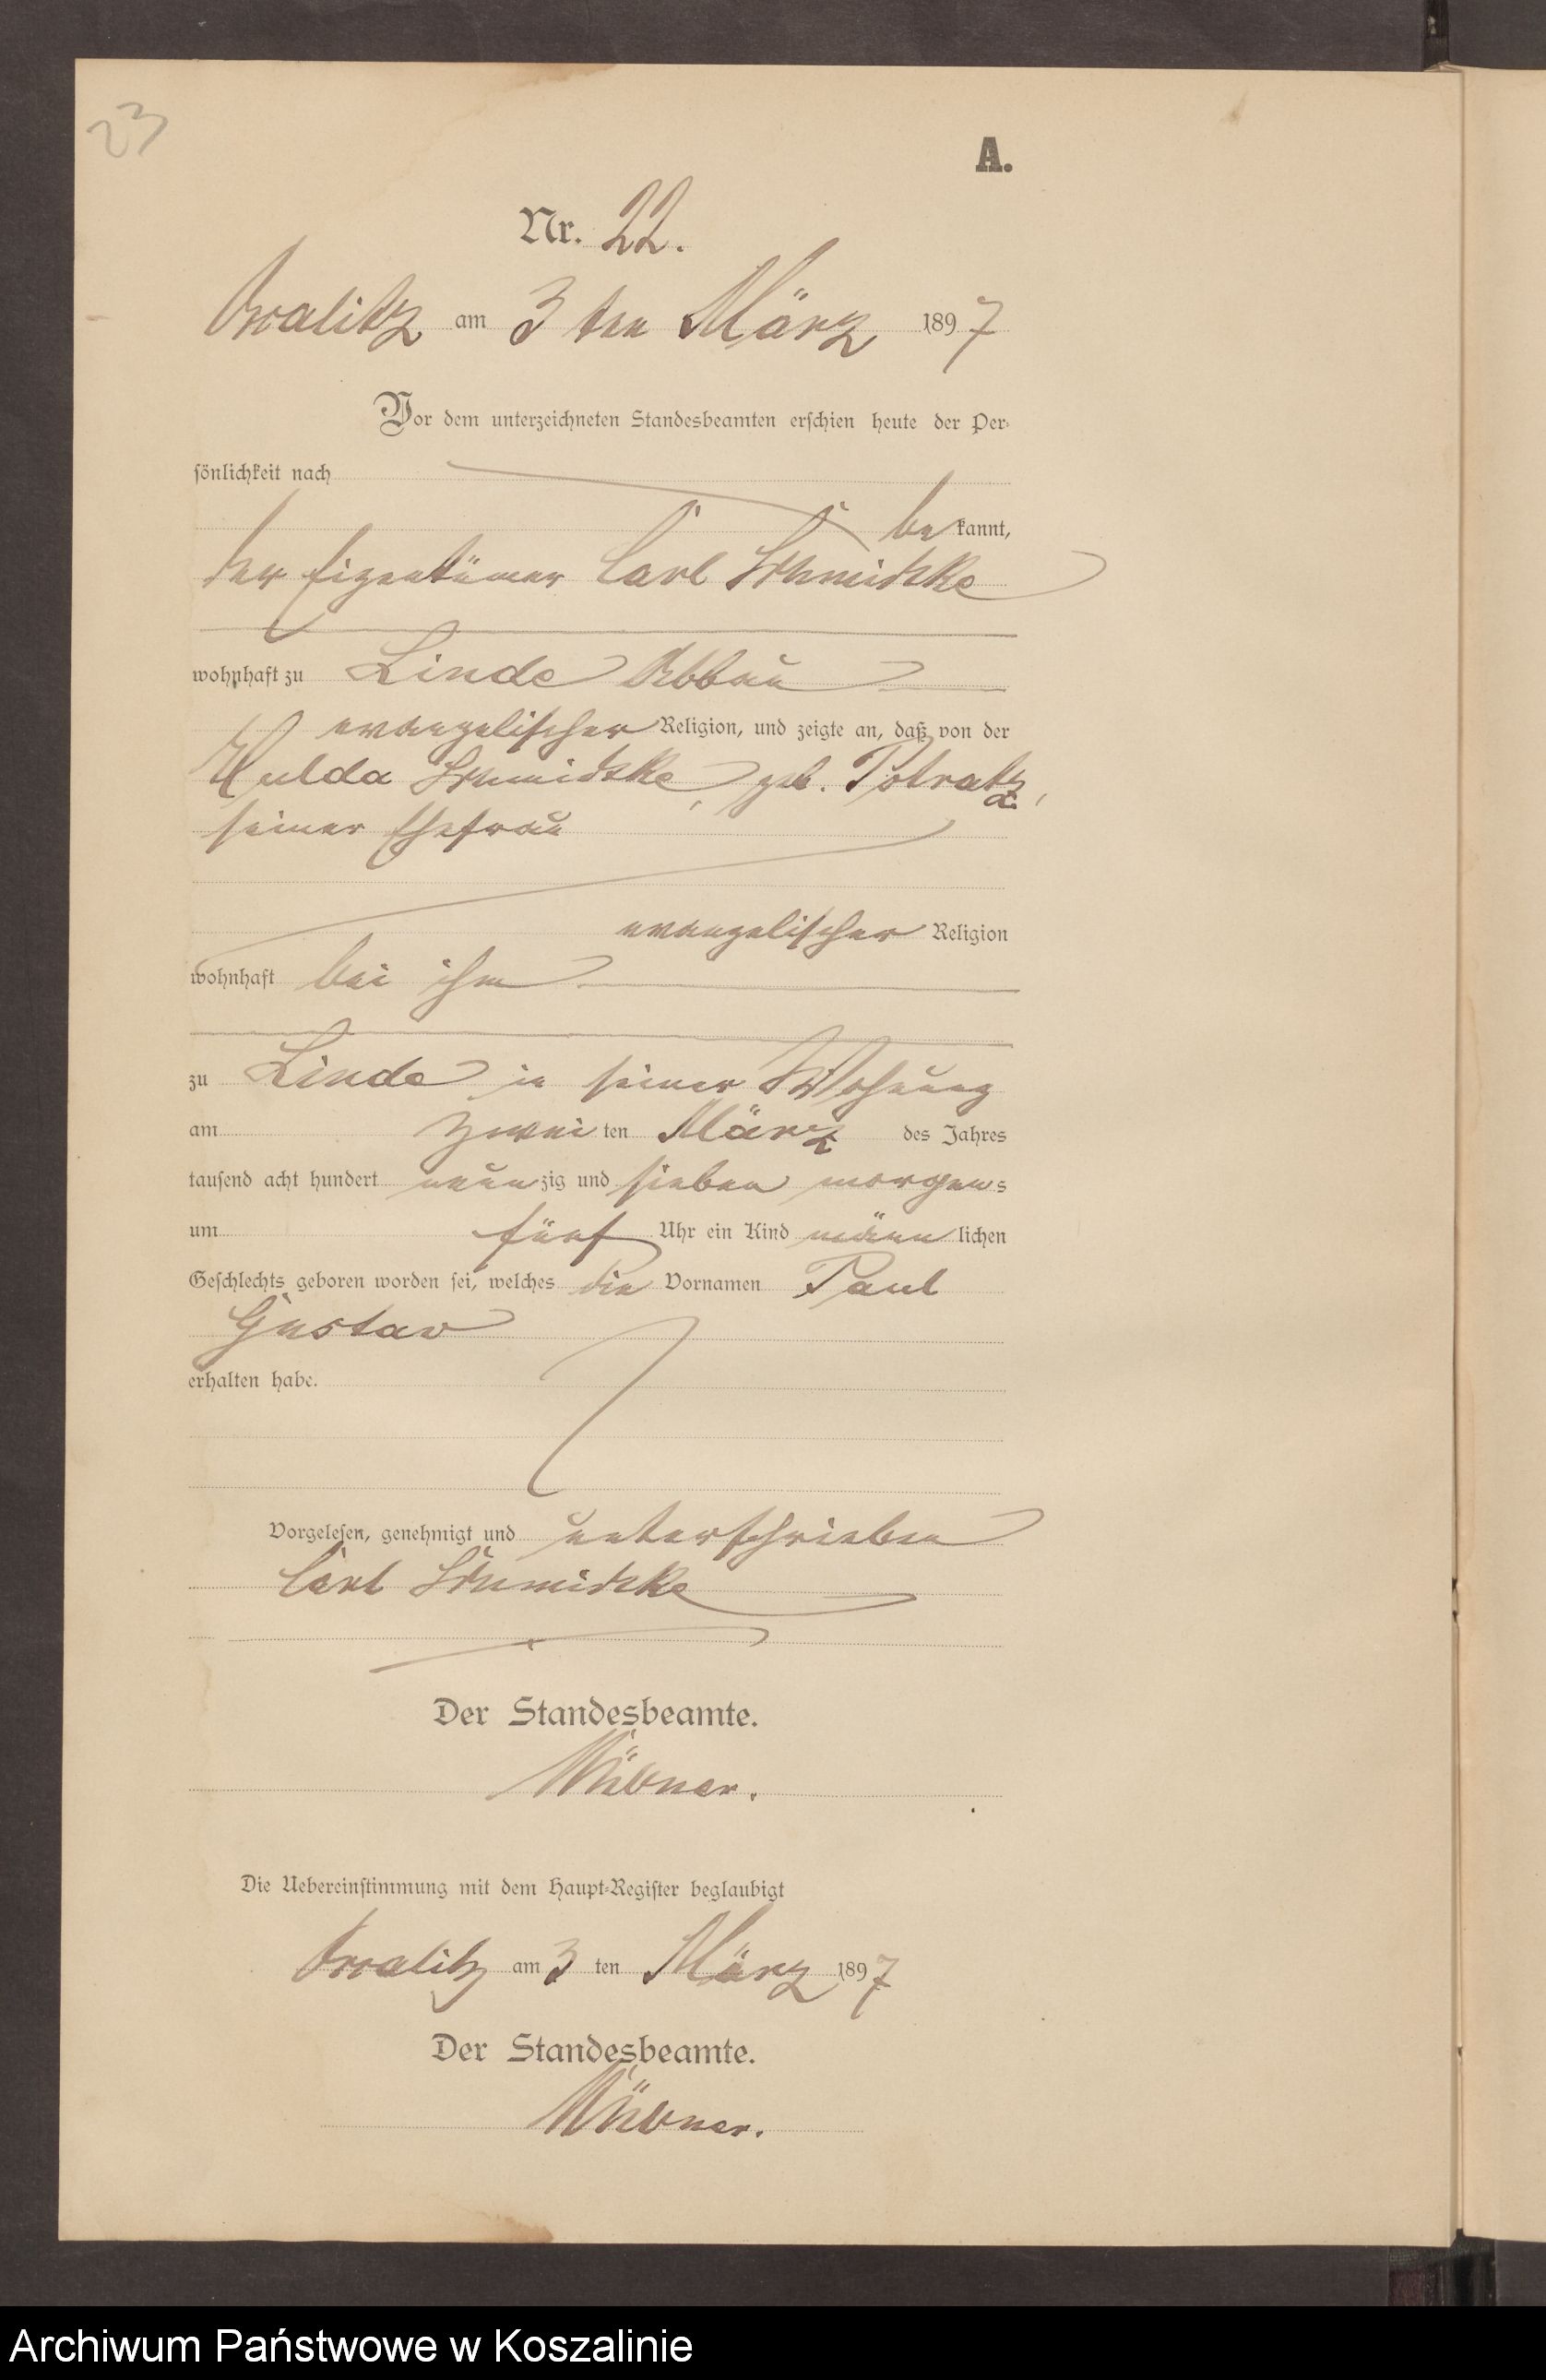 23
A.
Nr. 22.
am 3 ten März 1897
Vor dem unterzeichneten Standesbeamten erschien heute der Per-
sönlichkeit nach
be kannt,
der Eigentümer Carl Schmidtke
wohnhaft zu Linde Abbau
evangelischer Religion, und zeigte an, daß von der
Hulda Schmidtke, geb. Potratz,
seiner Ehefrau
evangelischer Religion
wohnhaft bei ihm
zu Linde in seiner Wohnung
am zwei ten März des Jahres
tausend acht hundert neun zig und sieben morgens
um fünf Uhr ein Kind männ lichen
Geschlechts geboren worden sei, welches die Vornamen Paul
Gustav
erhalten habe.
Vorgelesen, genehmigt und unterschrieben
Carl Schmidtke
Der Standesbeamte.
Die Uebereinstimmung mit dem Haupt-Register beglaubigt
am 3 ten März 1897
Der Standesbeamte.
Archiwum Państwowe w Koszalinie